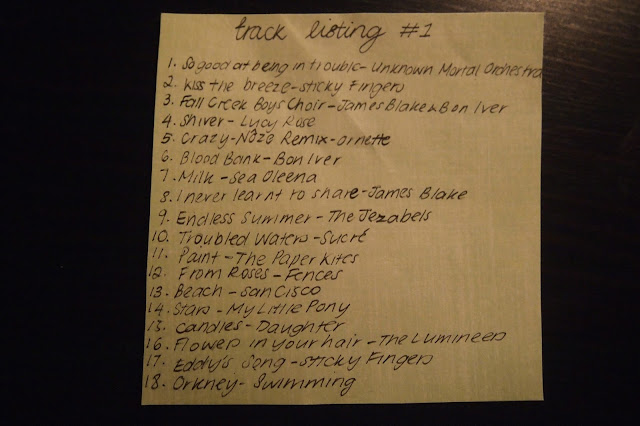 track listing #1
1. So good at being in trouble - Unknown Mortal Orchestra
2. Kiss the breeze - Sticky Fingers
3. Fall Creek Boys Choir - James Blake & Bon Iver
4. Shiver - Lucy Rose
5. Crazy - Nôze Remix - Ornette
6. Blood Bank - Bon Iver
7. Milk - Sea Oleena
8. I never learnt to share - James Blake
9. Endless Summer - The Jezabels
10. Troubled Waters - Sucré
11. Paint - The Paper Kites
12. From Roses - Fences
13. Beach - San Cisco
14. Stars - My Little Pony
15. Candles - Daughter
16. Flowers in your hair - The Lumineers
17. Eddy's Song - Sticky Fingers
18. Orkney - Swimming